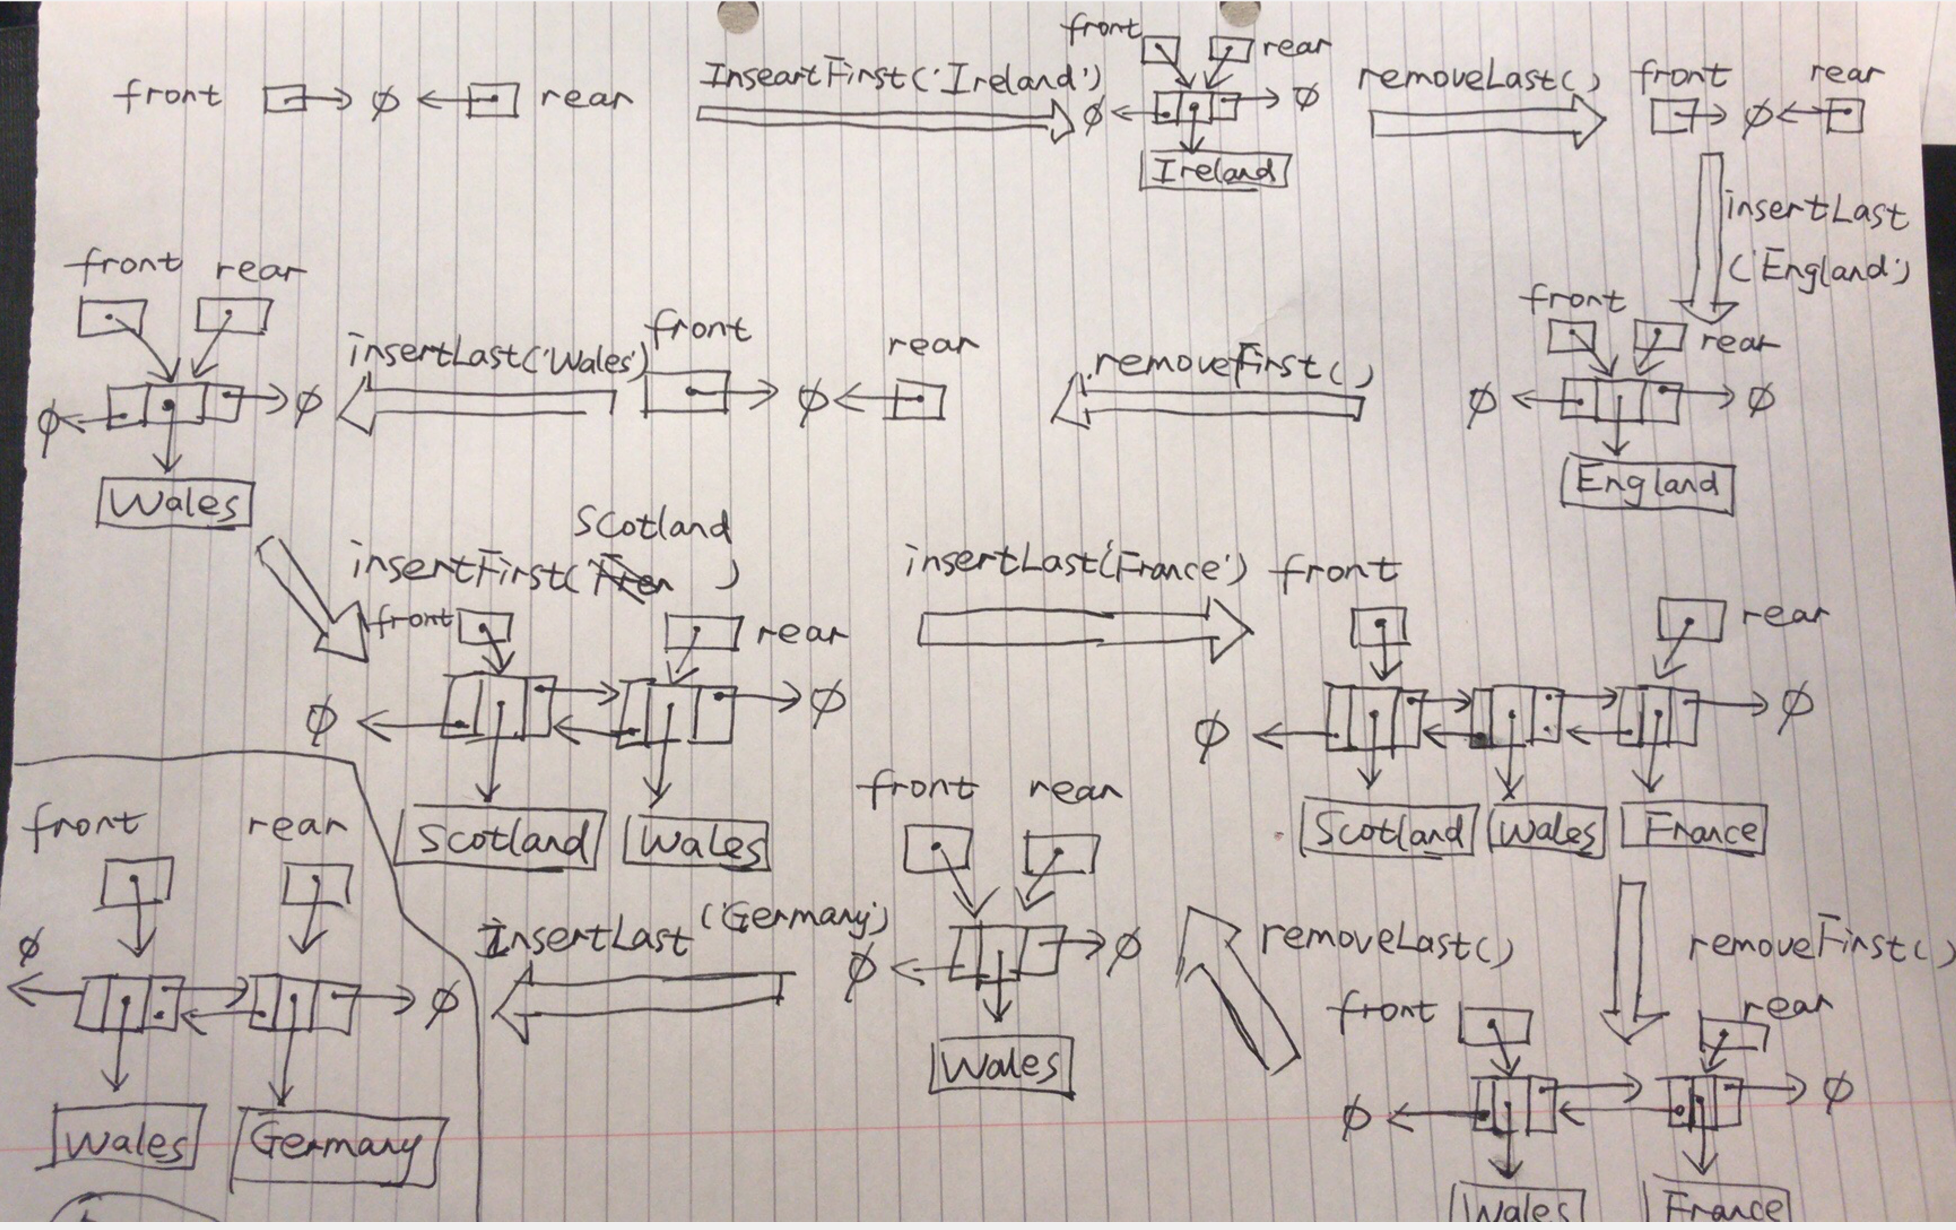 front ∅ rear
InseartFirst('Ireland')
front rear
∅ ∅
Ireland
removeLast()
front rear
∅
insertLast
('England')
front rear
∅ ∅
England
removeFirst()
front rear
∅
insertLast('Wales')
front rear
∅ ∅
Wales
Scotland
insertFirst(' )
front rear
∅ ∅
Scotland Wales
insertLast('France')
front rear
∅ ∅
Scotland Wales France
removeFirst()
front rear
∅ ∅
Wales France
removeLast()
front rear
∅ ∅
Wales
InsertLast ('Germany')
front rear
∅ ∅
Wales Germany